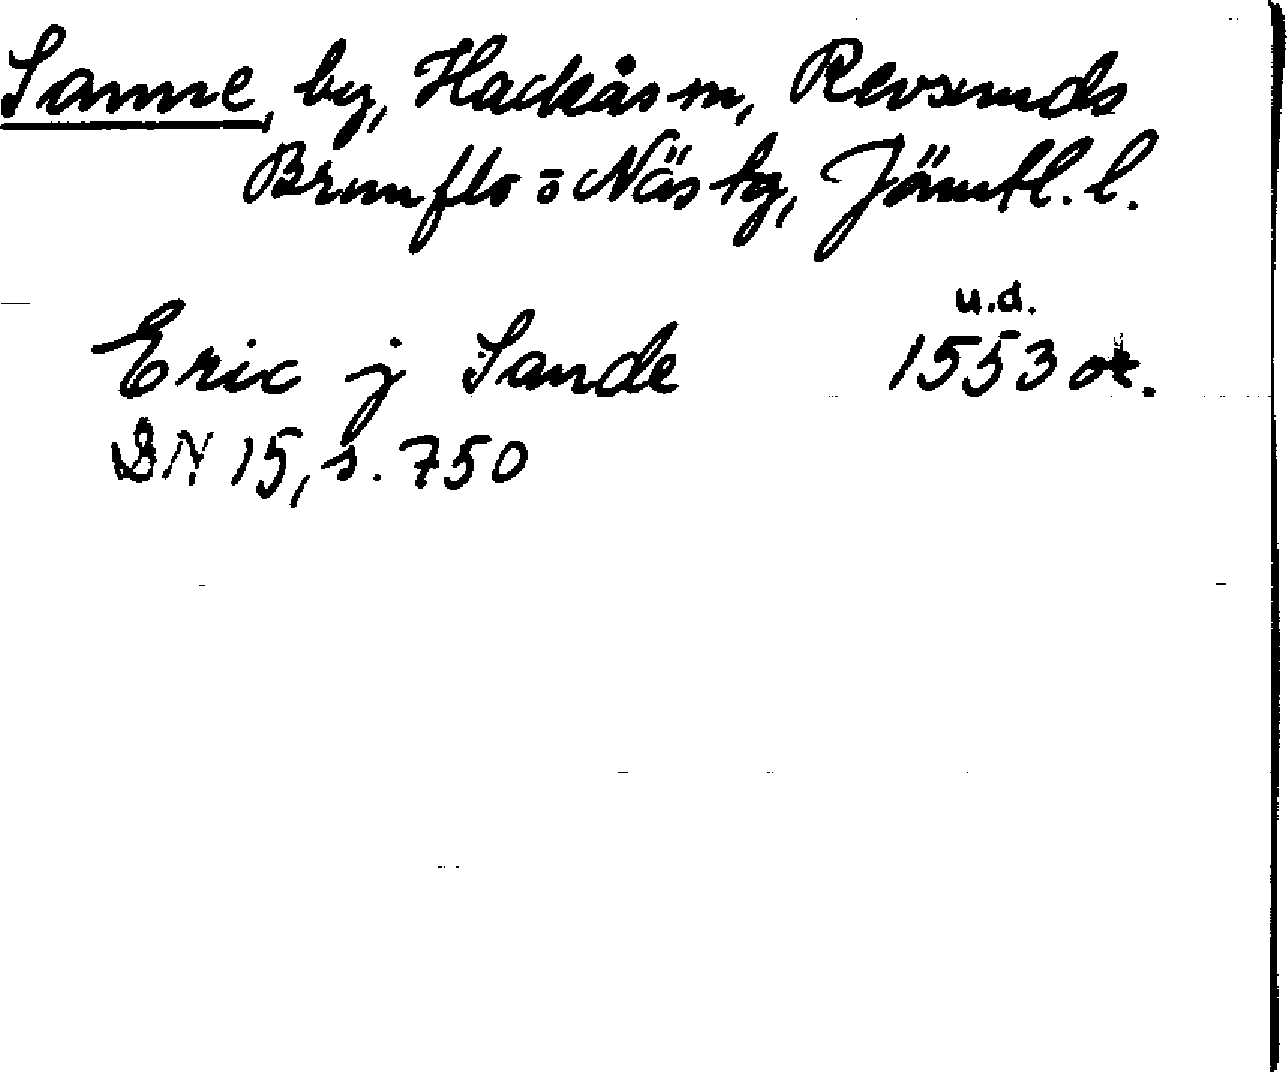 Sanne, by, Hackås sn, Revsunds
Brunflo o Näs tg, Jämtl. l.
u.d.
Eric j Sande 1553 or.
DN 15, s. 750